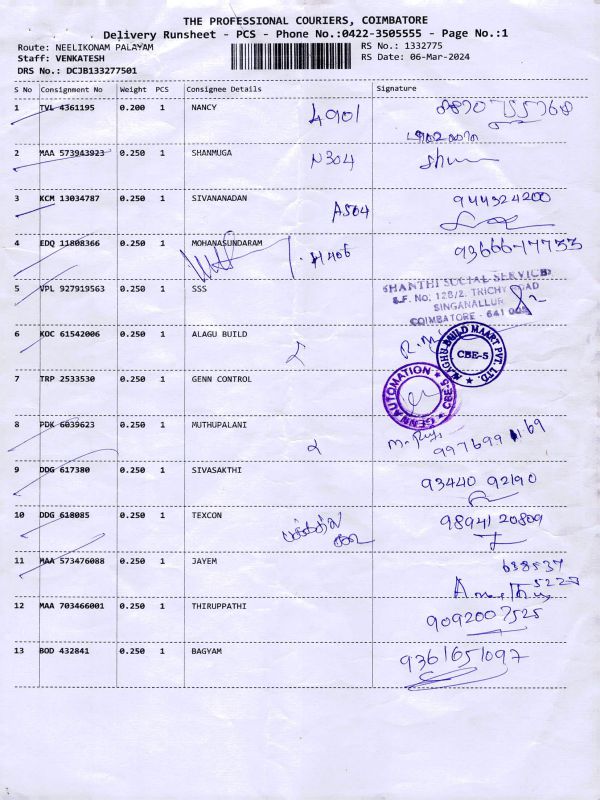 THE PROFESSIONAL COURIERS, COIMBATORE
Delivery Runsheet - PCS - Phone No.:0422-3505555 - Page No.:1
Route: NEELIKONAM PALAYAM RS No.: 1332775
Staff: VENKATESH RS Date: 06-Mar-2024
DRS No.: DCJB133277501
S No Consignment No Weight PCS Consignee Details Signature
1 TVL 4361195 0.200 1 NANCY 4901
2 MAA 573943923 0.250 1 SHANMUGA N304
3 KCM 13034787 0.250 1 SIVANANADAN A504 944324200
4 EDQ 11808366 0.250 1 MOHANASUNDARAM H406
5 VPL 927919563 0.250 1 SSS
SHANTHI SOCIAL SERVICES
S.F. No. 128/2, TRICHY ROAD
SINGANALLUR
COIMBATORE - 641 005
6 KOC 61542006 0.250 1 ALAGU BUILD
ALAGHU BUILD MAART PVT. LTD. CBE-5
7 TRP 2533530 0.250 1 GENN CONTROL
GENN AUTOMATION CBE-5
8 PDK 6039623 0.250 1 MUTHUPALANI
9 DDG 617380 0.250 1 SIVASAKTHI 93440 92190
10 DDG 618085 0.250 1 TEXCON 98941 20809
11 MAA 573476088 0.250 1 JAYEM 638537
5227
12 MAA 703466001 0.250 1 THIRUPPATHI 9092007525
13 BOD 432841 0.250 1 BAGYAM 9361651097